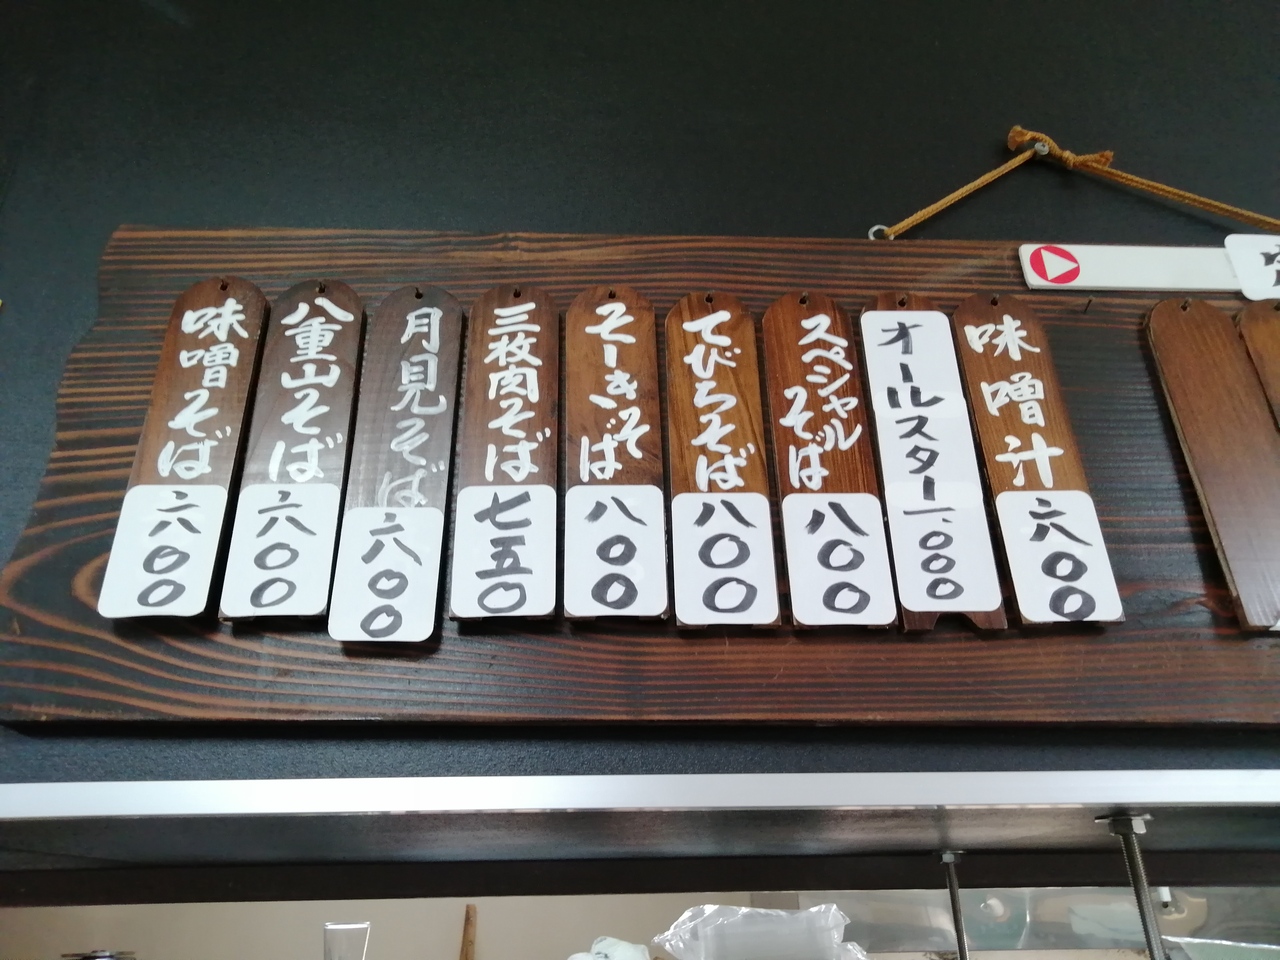 味噌そば
六〇〇
八重山そば
六〇〇
月見そば
六〇〇
三枚肉そば
七五〇
そーきそば
八〇〇
てびちそば
八〇〇
スペシャルそば
八〇〇
オールスター
一、〇〇〇
味噌汁
六〇〇